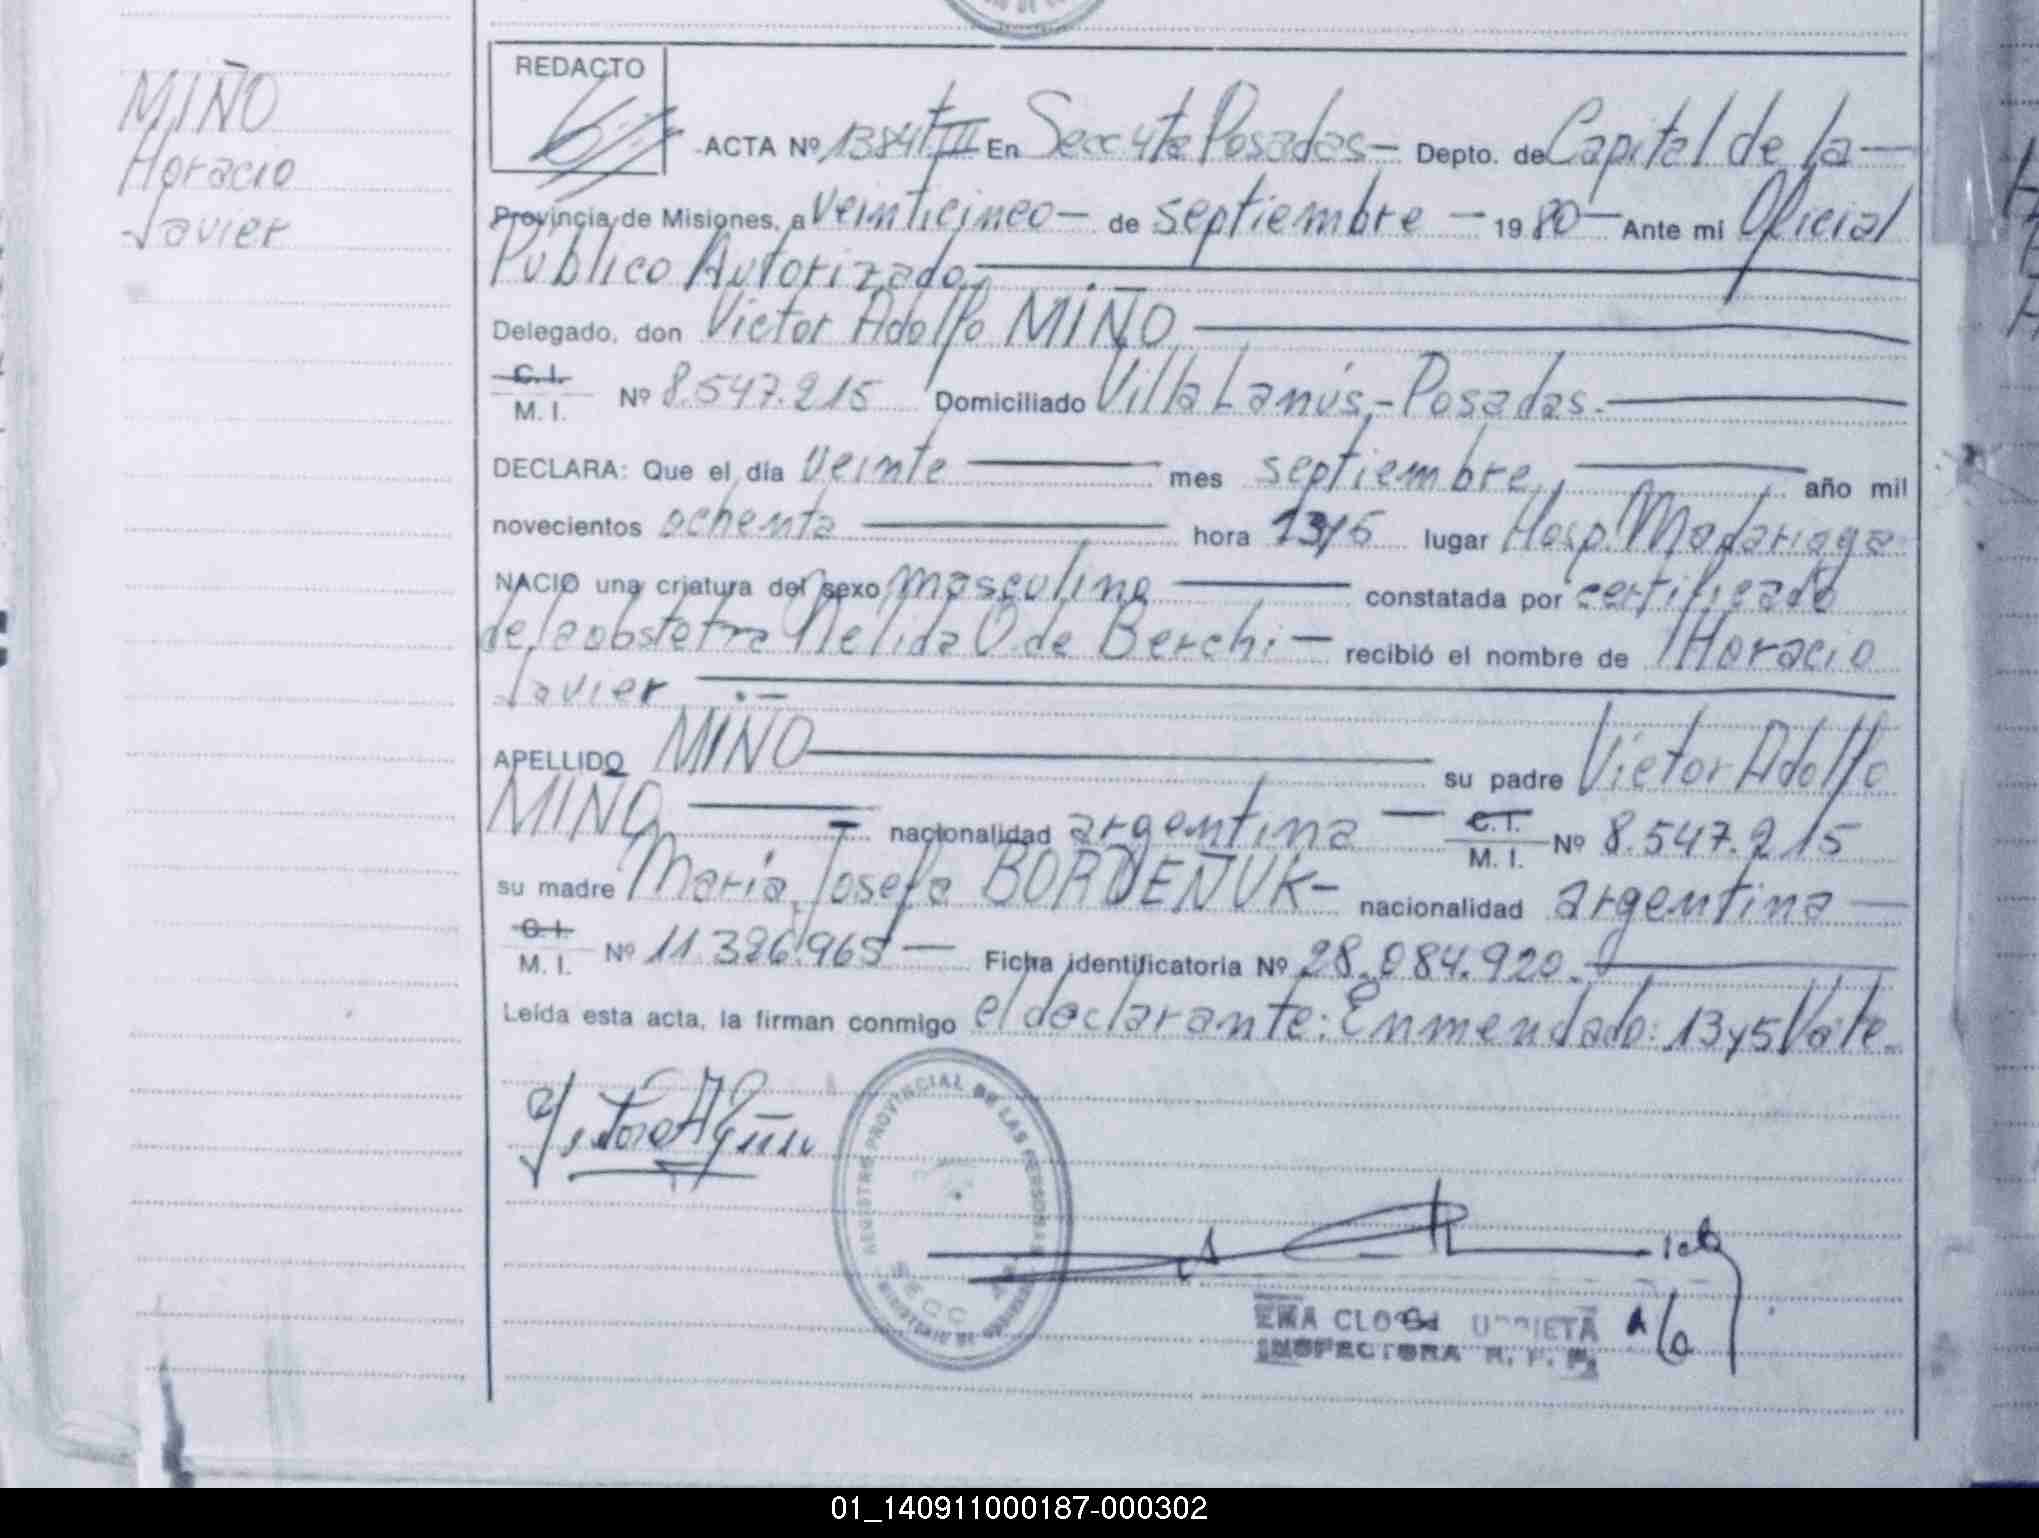 MIÑO
Horacio
Javier
REDACTO
ACTA Nº 1384 T. III En Secc 4ta Posadas- Depto. de Capital de la-
Provincia de Misiones, a veinticinco- de septiembre - 19 80 - Ante mi Oficial
Público Autorizado
Delegado, don Victor Adolfo MIÑO
C. I.
M. I. Nº 8.547.215 Domiciliado Villa Lanús,- Posadas.
DECLARA: Que el día veinte mes septiembre, año mil
novecientos ochenta hora 13y5 lugar Hosp. Madariaga
NACIO una criatura del sexo masculino constatada por certificado
de la obstetra Nelida O. de Berchi- recibió el nombre de Horacio
Javier
APELLIDO MIÑO su padre Victor Adolfo
MIÑO nacionalidad argentina - C.I. M. I. Nº 8.547.215
su madre Maria Josefa BORDEÑUK- nacionalidad argentina
C. I.
M. I. Nº 11.326.965 - Ficha identificatoria Nº 28.084.920.
Leída esta acta, la firman conmigo el declarante: Enmendado: 13y5 Vale.
REGISTRO PROVINCIAL DE LAS PERSONAS
SECC
EMA URRIETA
INSPECTORA R. P. P.
01_140911000187-000302